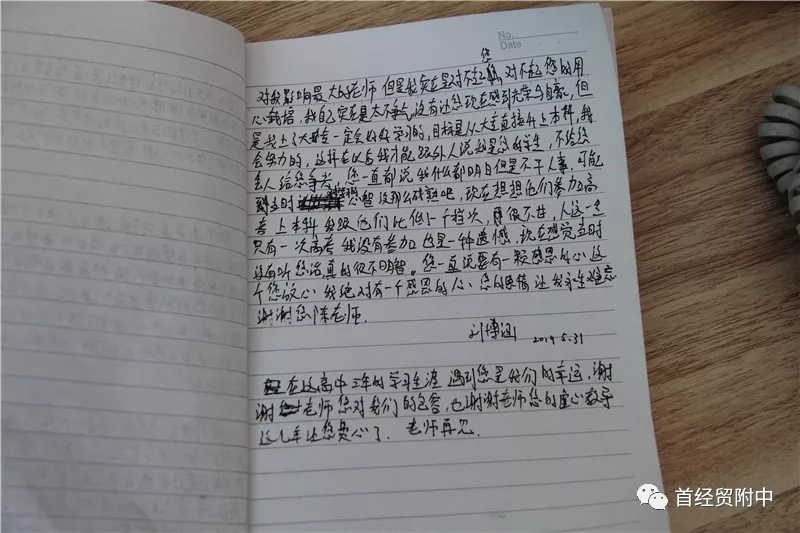 No.
Date
对我影响最大的老师 但是我实在是对不起您, 对不起您的用
心栽培, 我自己实在是太不争气, 没有让您现在感到光荣与自豪, 但
是我上了大专一定会好好学习的, 目标是从大专直接升上本科, 我
会努力的, 这样在以后我才能跟外人说我是您的学生, 不给您
丢人给您争光。您一直都说我什么都明白但是不干人事, 可能
到当时 心智没那么成熟吧, 现在想想他们参加高
考上本科 我跟他们比低了一个档次, 很不甘, 人这一生
只有一次高考 我没有参加 也是一种遗憾, 现在想觉当时
没有听您话真的很不明智。您一直说要有一颗感恩的心 这
个您放心 我绝对有一个感恩的人、您的恩情让我永生难忘
谢谢您陈老师.
刘博涵 2019.5.31
在这高中三年的学习生涯 遇到您是我们的幸运, 谢
谢 老师您对我们的包容, 也谢谢老师您的童心教导
这几年让您费心了. 老师再见.
首经贸附中